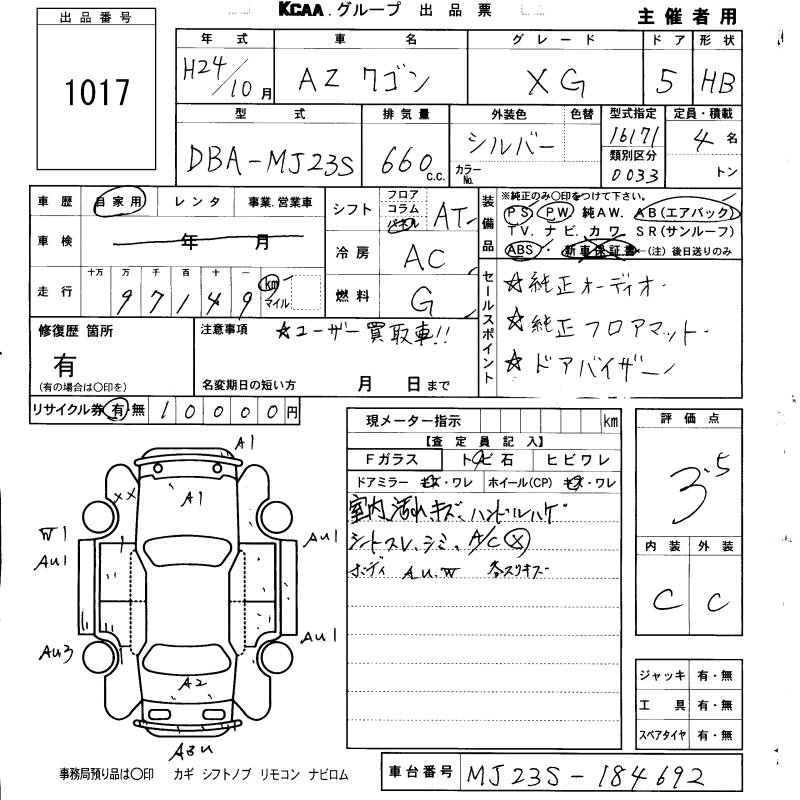 KCAA グループ 出品票
主催者用
出品番号
1017
年式 車名 グレード ドア 形状
H24/10月 AZ ワゴン XG 5 HB
型式 排気量 外装色 色替 型式指定 定員・積載
DBA-MJ23S 660 c.c. シルバー カラーNo. 16171 4名
類別区分
0033 トン
車歴 自家用 レンタ 事業.営業車
シフト フロア コラム パネル AT
車検 年 月
冷房 AC
走行 十万 万 千 百 十 一
97149 km マイル
燃料 G
装備品 ※純正のみ〇印をつけて下さい。
PS PW 純AW. AB(エアバック)
TV. ナビ. カワ SR(サンルーフ)
ABS 新車保証書 (注)後日送りのみ
セールスポイント
☆純正オーディオ
☆純正フロアマット
☆ドアバイザー
修復歴 箇所
有
(有の場合は〇印を)
注意事項 ☆ユーザー買取車!!
名変期日の短い方 月 日まで
リサイクル券 有・無 10000円
現メーター指示 km
【査定員記入】
Fガラス トビ石 ヒビワレ
ドアミラー キズ・ワレ ホイール(CP) キズ・ワレ
室内 汚れ、キズ、ハンドルハゲ
シートスレ、シミ、A/C(X)
ボディ AU.W 各スリキズ
評価点
3.5
内装 外装
C C
A1
A1
XX
W1
AU1
AU1
AU3
AU1
A2
A3U
ジャッキ 有・無
工具 有・無
スペアタイヤ 有・無
事務局預り品は〇印 カギ シフトノブ リモコン ナビロム
車台番号 MJ23S-184692